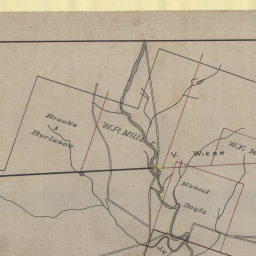 Brooks
&
Burleson
W.P. Mills
V. Wiess
W.F. M
Michael
Doyle